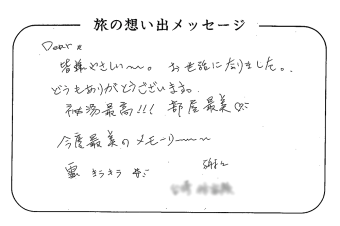 旅の想い出メッセージ
Dear
皆様やさしい〜〜。お世話になりました。
どうもありがとうございます。
秘湯最高!!! 部屋最美
今度最美のメモーリ〜〜〜
雪 キラキラ